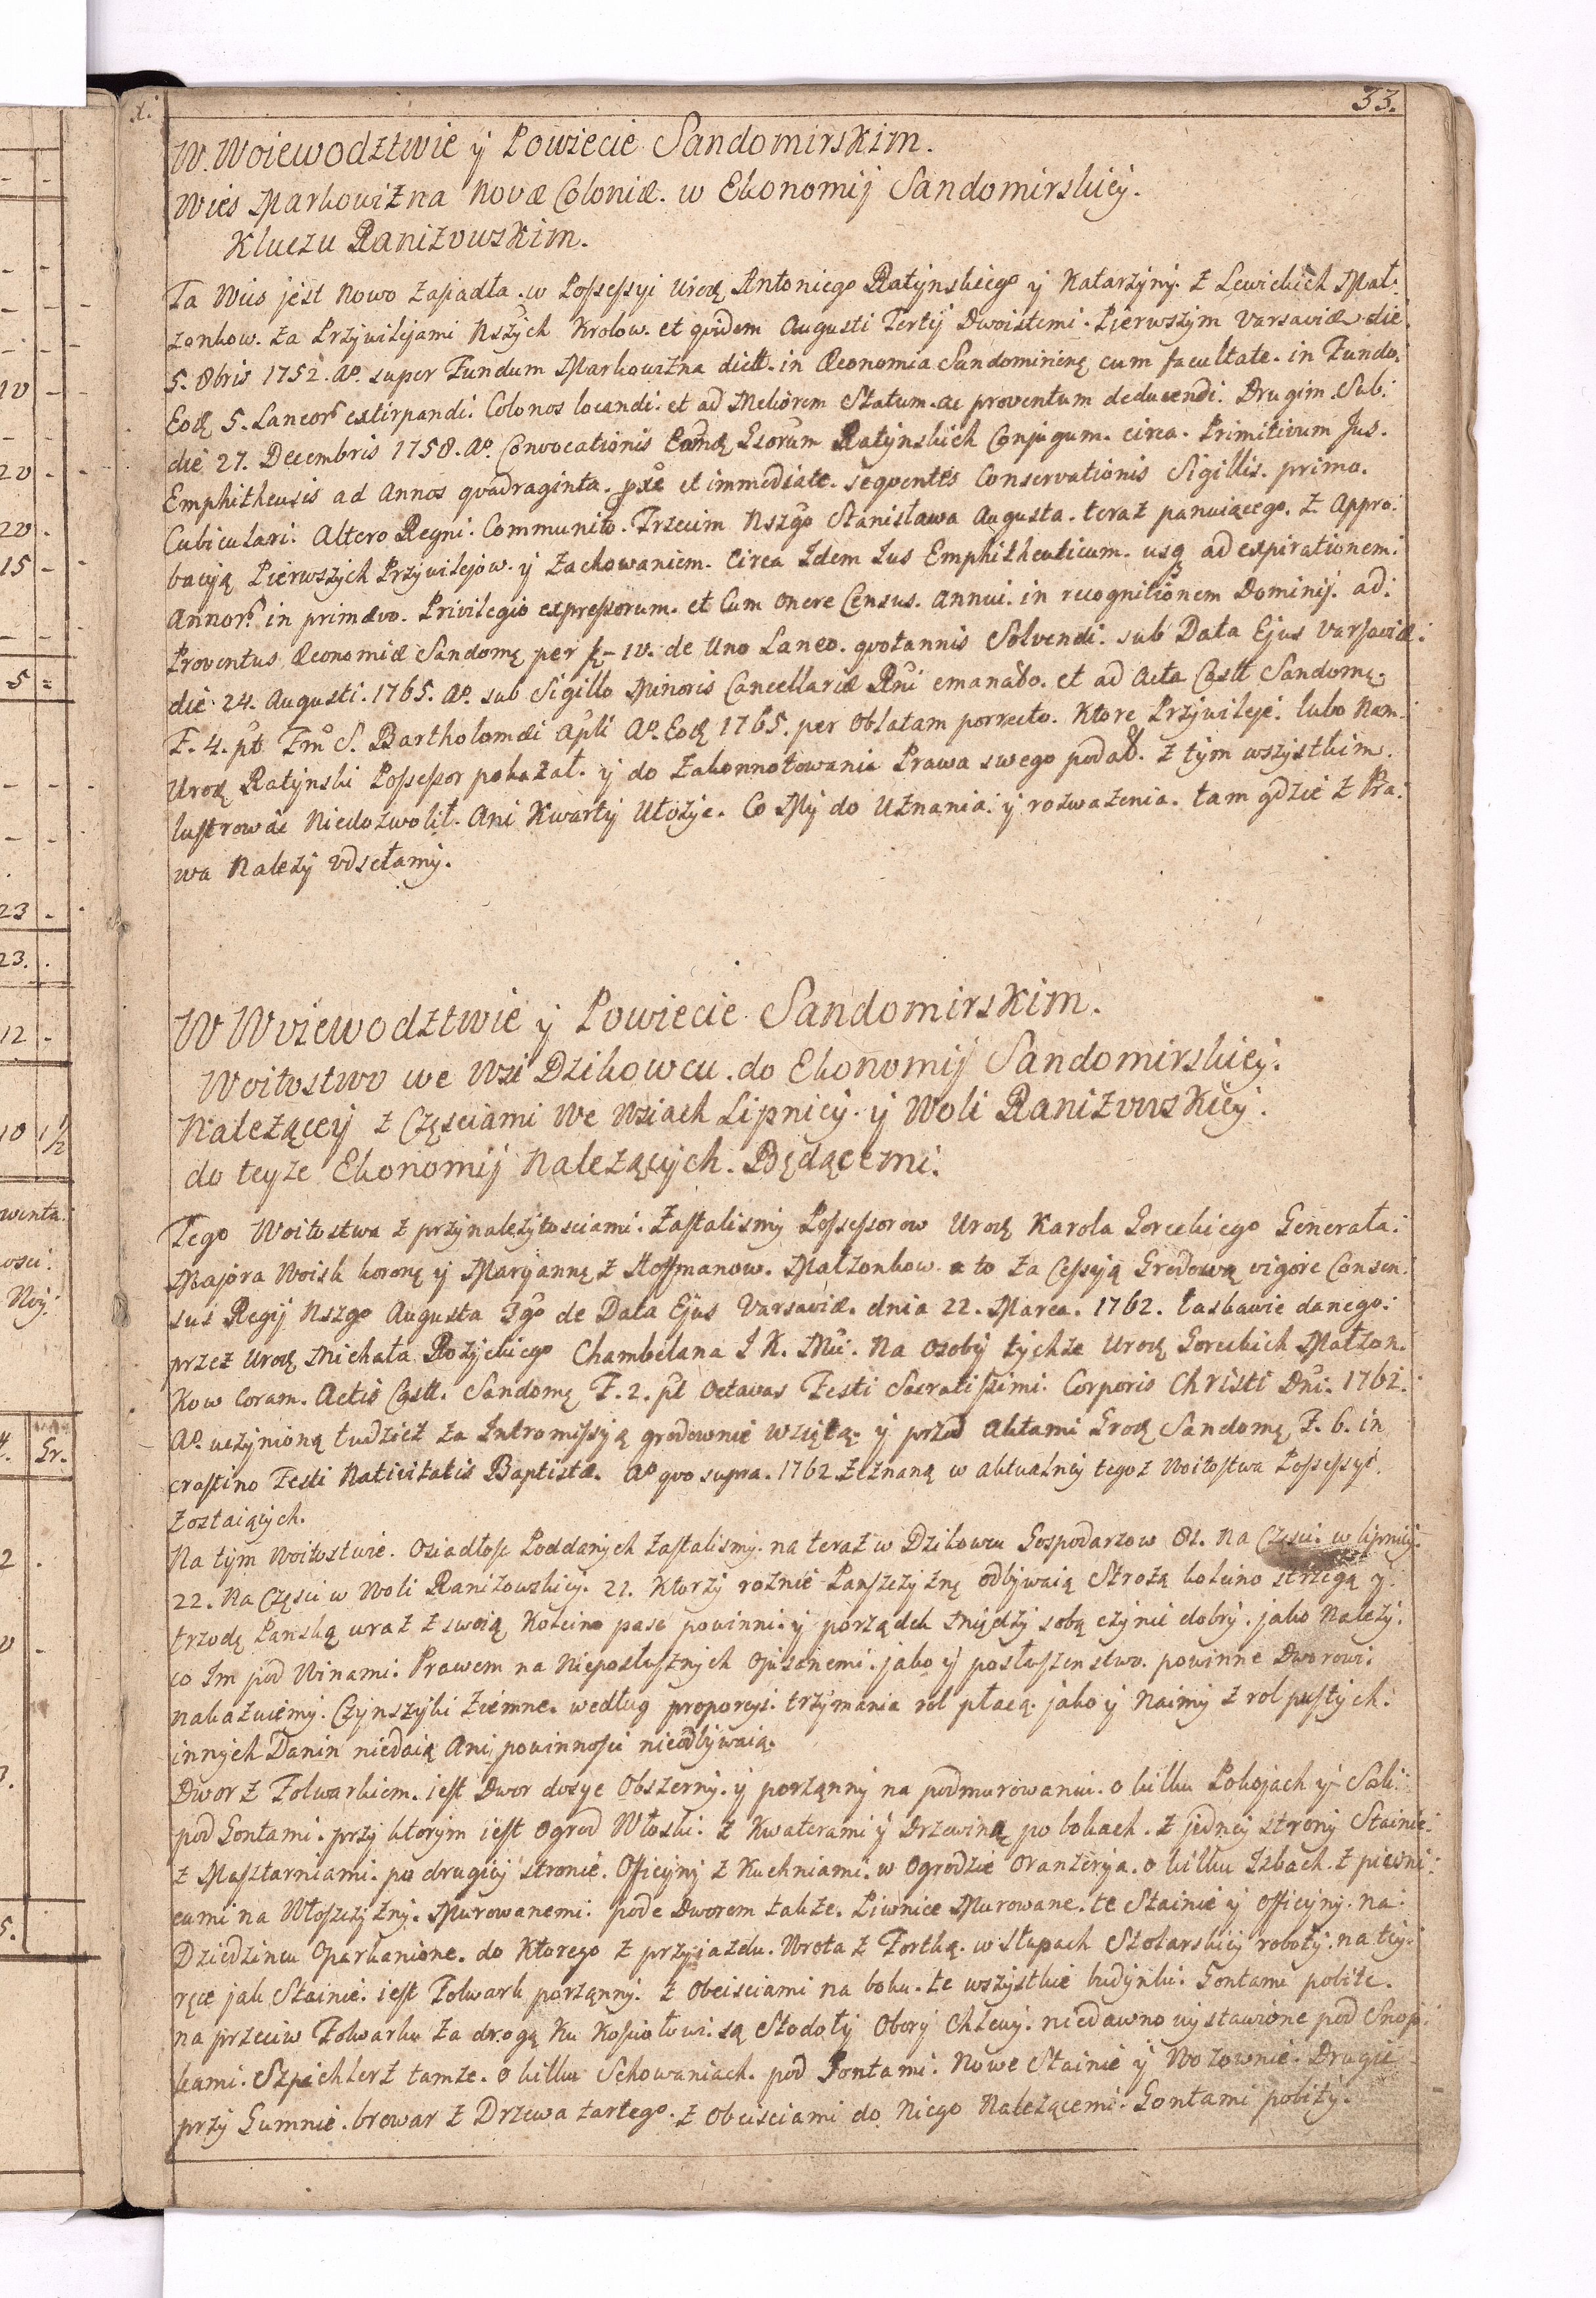 33.
W. Woiewodztwie ÿ Powiecie Sandomirskim.
Wies Markowizna Novæ Coloniæ. w Ekonomij Sandomirskiey.
Kluczu Ranizowskim.
Ta Wies jest Nowo zasiadła. w Possessyi Urod Antoniego Ratynskiego ÿ Katarzyny. z Lewickich Mał.
zonkow. za Przywilejami Nszych Krolow. et qvidem Augusti Tertij Dwoistemi. Pierwszym Varsaviæ die
5. 8bris 1752. Aº. super Fundum Markowizna dictt. in Œconomia Sandominenę cum facultate. in Fundo.
Eod 5. Laneor extirpandi. Colonos locandi. et ad Meliorem Statum. ac proventum deducendi. Drugim. Sub.
die 27. Decembris 1758. Aº. Convocationis Eornd Gsorum Ratynskich Conjugum. circa. Primitivum Jus.
Emphitheusis ad Annos qvadraginta. et immediate. seqventes Conservationis Sigillis. primo.
Cubiculari. Altero Regni. Communito. Trzecim Nszgo Stanisława Augusta. teraz panuiącego. z Appro:
bacyą Pierwszych Przywilejow. ÿ zachowaniem. Circa Idem Ius Emphitheuticum. usq ad expirationem.
Annor. in primævo. Privilegio expressorum. et Cum onere Census. annui. in recognitionem Dominij. ad.
Proventus Œconomiæ Sandomę per f – 10. de Uno Laneo. qvotannis Solvendi. sub Data Ejus Varsaviæ.
die 24. Augusti. 1765. Aº. sub Sigillo Minoris Cancellariæ Rni emanato. et ad Acta Castt Sandomę.
F. 4. pt Fm S. Bartholomæi Apli Aº. Eod 1765. per Oblatam porrecto. Ktore Przywileje. lubo Nam.
Urod Ratynski Possessor pokazał. ÿ do zakonnotowania Prawa swego podał. z tym wszystkim.
lustrować Niedozwolił. Ani Kwarty Ułożyć. Co My do Uznania. ÿ rozważenia. tam gdzie z Pra:
wa Należy odsełamy.
W Woiewodztwie ÿ Powiecie Sandomirskim.
Woitostwo we Wsi Dzikowcu. do Ekonomij Sandomirskiey.
Należącey z Częsciami We Wsiach Lipnicy. ÿ Woli Ranizowskiey.
do teyze Ekonomij Należących. Będącemi.
Tego Woitostwa z przynależytosciami. Zastalismy Possessorow Urod Karola Goreckiego Generała.
Majora Woisk koronę ÿ Maryannę z Hoffmanow. Małzonkow. a to za Cessyą Grodową vigore Consen:
sus Regij Nszgo Augusta 3go de Data Ejus Varsaviæ. dnia 22. Marca. 1762. łaskawie danego.
przez Urod Michała Rożyckiego Chambelana J K. Mci. Na Osoby tychze Urod Goreckich Małzon.
kow Coram. Actis Castt. Sandomę F. 2. pt Octavas Festi Sacratissimi. Corporis Christi Dni. 1762.
Aº. uczynioną tudziez za Intromissyą grodownie wziętą. ÿ przed Aktami Grod Sandomę F. 6. in
crastino Festi Nativitatis Baptistæ. Aº qvo supra. 1762 zeznaną w aktualney tegoz Woitostwa Possessyi.
zostaiących.
Na tym Woitostwie. Osiadłosc Poddanych zastalismy. na teraz w Dzikowcu Gospodarzow 81. Na Częsci. w Lipnicy.
22. Na Częsci w Woli Ranizowskiey. 21. Ktorzy roznie Panszczyznę odbywaią Strożą koleino strzegą ÿ.
trzodę Panską wraz z swoią Koleino pasc powinni. ÿ porządek między sobą czynic dobry. jako Należy.
co Im pod Winami. Prawem na Niepostusznych Opisanemi. jako ÿ posłuszenstwo. powinne Dworowi.
nakazuiemy. Czynszyki ziemne. według proporcyi. trzymania rol płacą. jako ÿ Naimy z rol pustych.
innych Danin niedaią Ani powinnosci nieodbywaią.
Dwor z Folwarkiem. iest Dwor dosyc Obszerny. ÿ porządny na podmurowaniu. o kilku Pokojach ÿ Sali.
pod Gontami. przy ktorym iest Ogrod Włoski. z Kwaterami ÿ Drzewiną po bokach. z jedney strony Stainie.
z Masztarniami. po drugiey stronie. Officyny z Kuchniami. w Ogrodzie Oranzeryja. o kilku Izbach. z piwni:
cami na Włoszczyzny. Murowanemi. pode Dworem także. Piwnice Murowane. te Stainie ÿ Officyny. na.
Dziedzincu Oparkanione. do Ktorego z przyjazdu. Wrota z Fortką. w słupach Stolarskiey roboty. na tey.
ręce jak Stainie. iest Folwark porządny. z Obeisciami na boku. te wszystkie budynki. Gontami pobite.
na przeciw Folwarku za drogą Ku Kosciołowi. są Stodoły Obory Chlewy. niedawno wystawione pod Snop:
kami. Szpichlerz tamze. o kilku Schowaniach. pod Gontami. Nowe Stainie ÿ Wozownie. Drugie
przy Gumnie. browar z Drzewa tartego. z Obeisciami do Niego Należącemi. Gontami pobity.